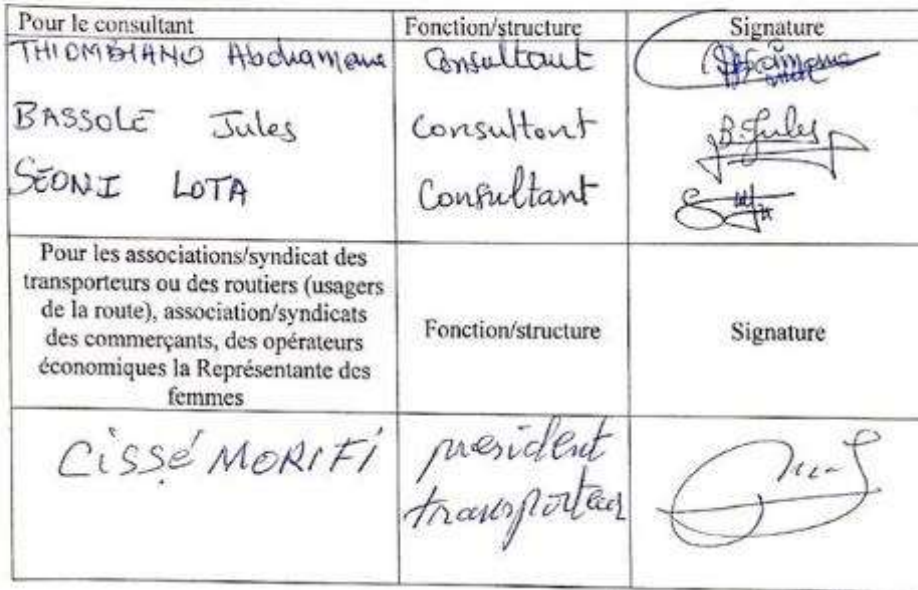 Pour le consultant Fonction/structure Signature
THIOMBIANO Abdramane Consultant
BASSOLE Jules Consultant B. Jules
SEONI LOTA Consultant
Pour les associations/syndicat des
transporteurs ou des routiers (usagers
de la route), association/syndicats
des commerçants, des opérateurs
économiques la Représentante des
femmes
Fonction/structure
Signature
CISSÉ MORIFI président
transporteur